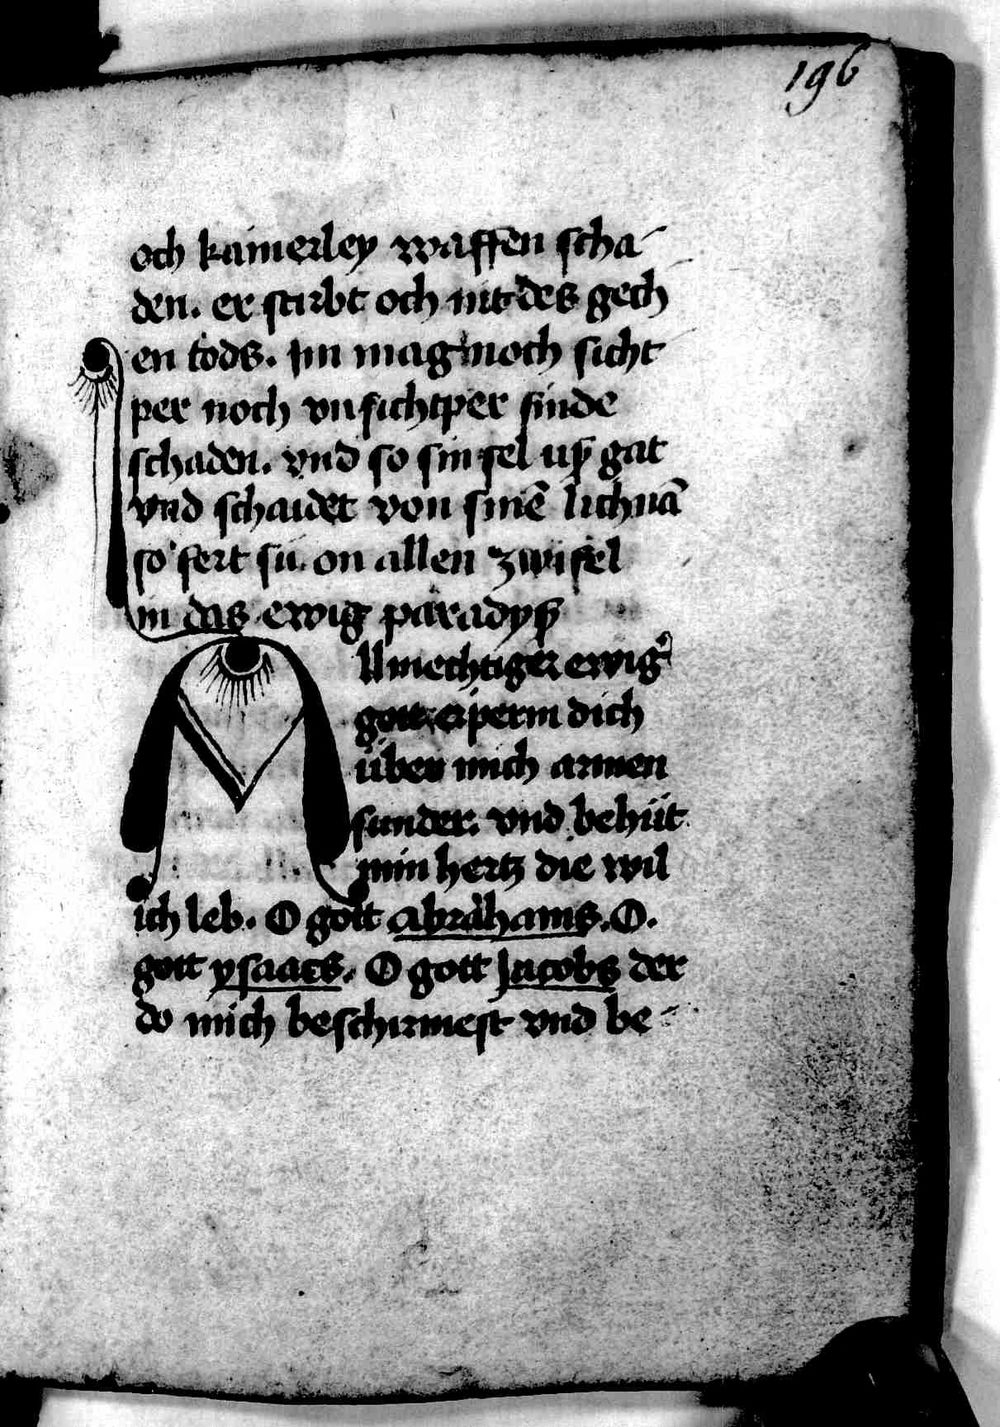 196
och kainerley waffen scha-
den. er stirbt och nit des gech
en tods. Im mag noch sicht
per noch vnsichtper finde
schaden. vnd so sin sel uß gat
vnd schaidet von sinē lichnā
so fert sú on allen zwifel
in das ewig paradyß
Allmechtiger ewig̉
gott erperm dich
über mich armen
sunder. vnd behüt
min hertz die wil
ich leb. O gott abrahams. O.
gott ysaacs. O gott Jacobs der
do mich beschirmest vnd be-